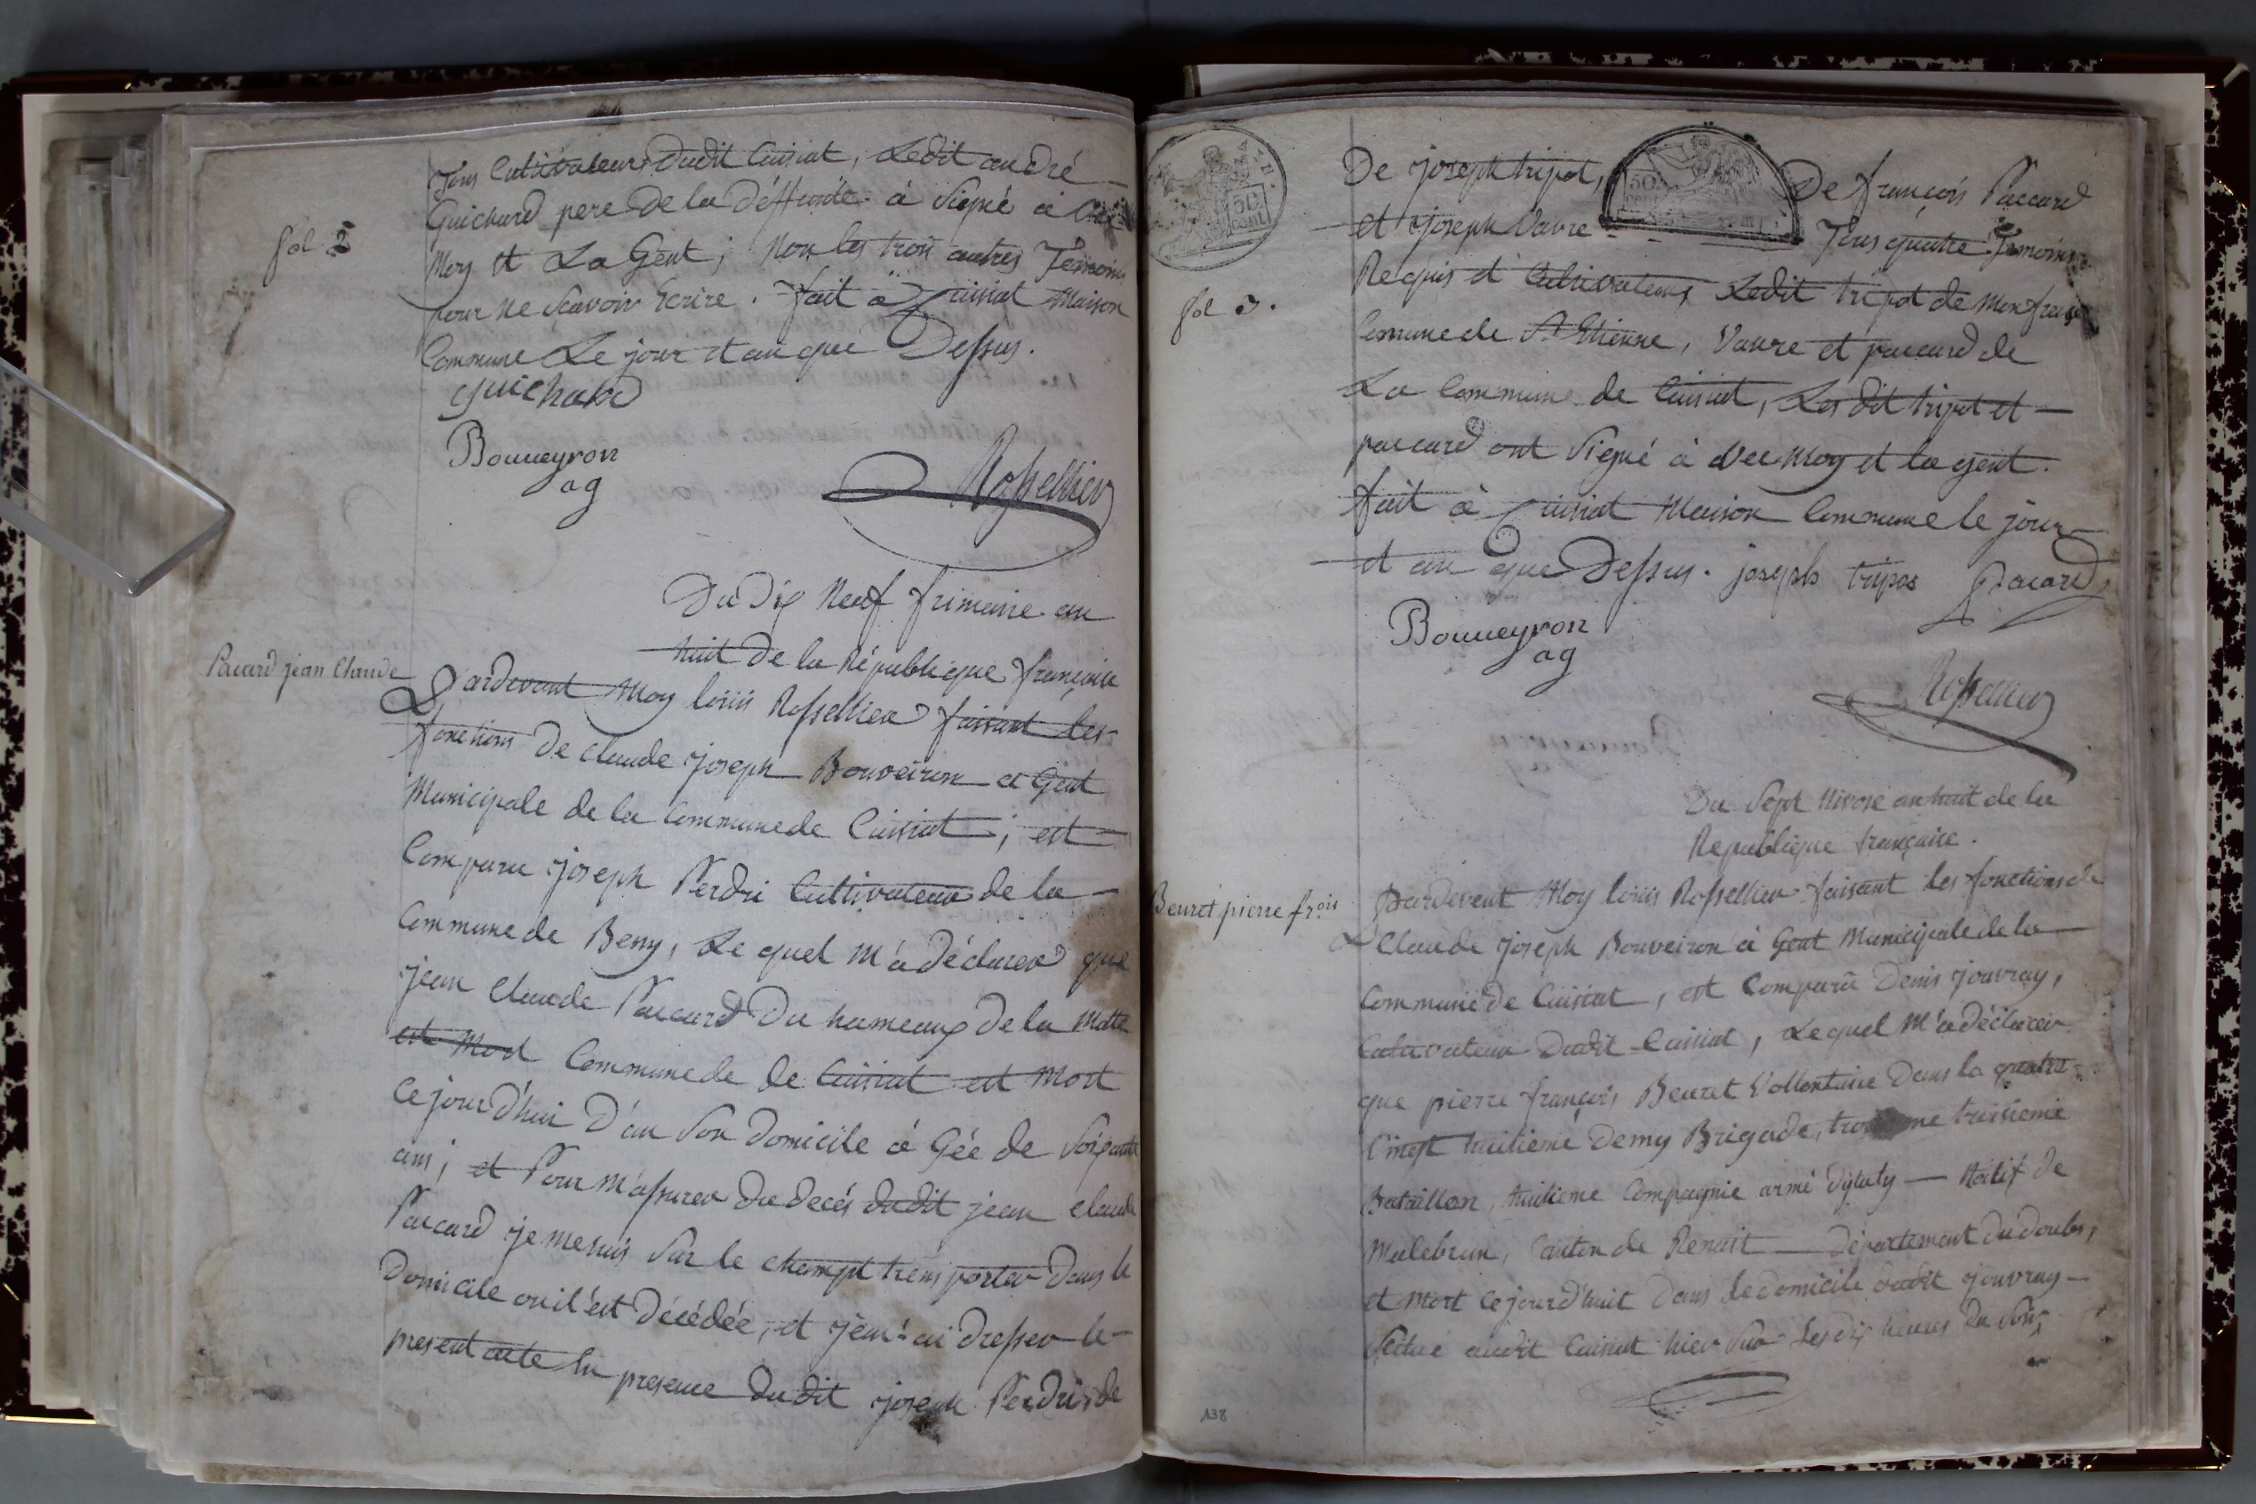 Tous Cultivateurs dudit Cuisiat, Ledit andré
Guichard pere de la déffunte à signé à vec
Moy et La Gent ; Non les trois autres Témoins
pour ne Scavoir Ecrire. fait à Cuisiat Maison
Commune Le jour et an que Dessus.
fol 2
guichard
Bouueyron
ag
Rossellier
Du Dix Neuf frimaire an
huit de la République françoise
Pacard jean Claude
Pardevant Moy louis Rossellier faisant les
fonctions De Claude joseph Bouveiron a Gent
Municipale de la Commune de Cuisiat ; est
Comparu joseph Perdri Cultivateur de la
Commune de Beny, Le quel m'a déclarer que
jean Claude Paccard Du hameaux de la Motte
est Mort Commune de de Cuisiat est Mort
Cejourd'hui D'an Son Domicile à Gée de Soixante
ans ; et Pour M'assurer du decés dudit jean Claude
Paccard je me suis Sur le champt trensporter Dans le
Domicile ou il est Décédée, et j'en ai dresser le
present acte En presence du dit joseph Perdri, de
De joseph tripot, De françois Paccard
et joseph Vavre Tous quatre Temoins
Requis et Cultivateurs, Ledit tripot de
Commune de St Etienne, Vavre et paccard de
fol 3.
La Commune de Cuisiat, Les dit tripot et
paccard ont Signé à Vec Moy et la gent.
fait à Cuisiat Maison Commune le jour
et an que Dessus. joseph tripos Pacard
Bouueyron
ag
Rossellier
Du Sept Nivose an huit de la
Republique française.
Beuret pierre frois
Pardevent Moy louis Rossellier faisant les fonctions de
Claude joseph Bouveiron à Gent Municipale de la
Commune de Cuisiat, est Comparu Denis jouvray,
Cultivateur Dudit Cuisiat, Lequel M'a déclarer
que pierre françois Beuret Vollontaire Dans la quatre
Vingt huitieme Demy Brigade, troisieme
Bataillon, huitieme Compagnie armé Dytaly — Natif de
Malebrun, Canton de — Département du doubs,
et Mort Cejourd'huit Dans le domicile dudit jouvray
Situé audit Cuisiat hier Sur Les dix heures du Soir,
138